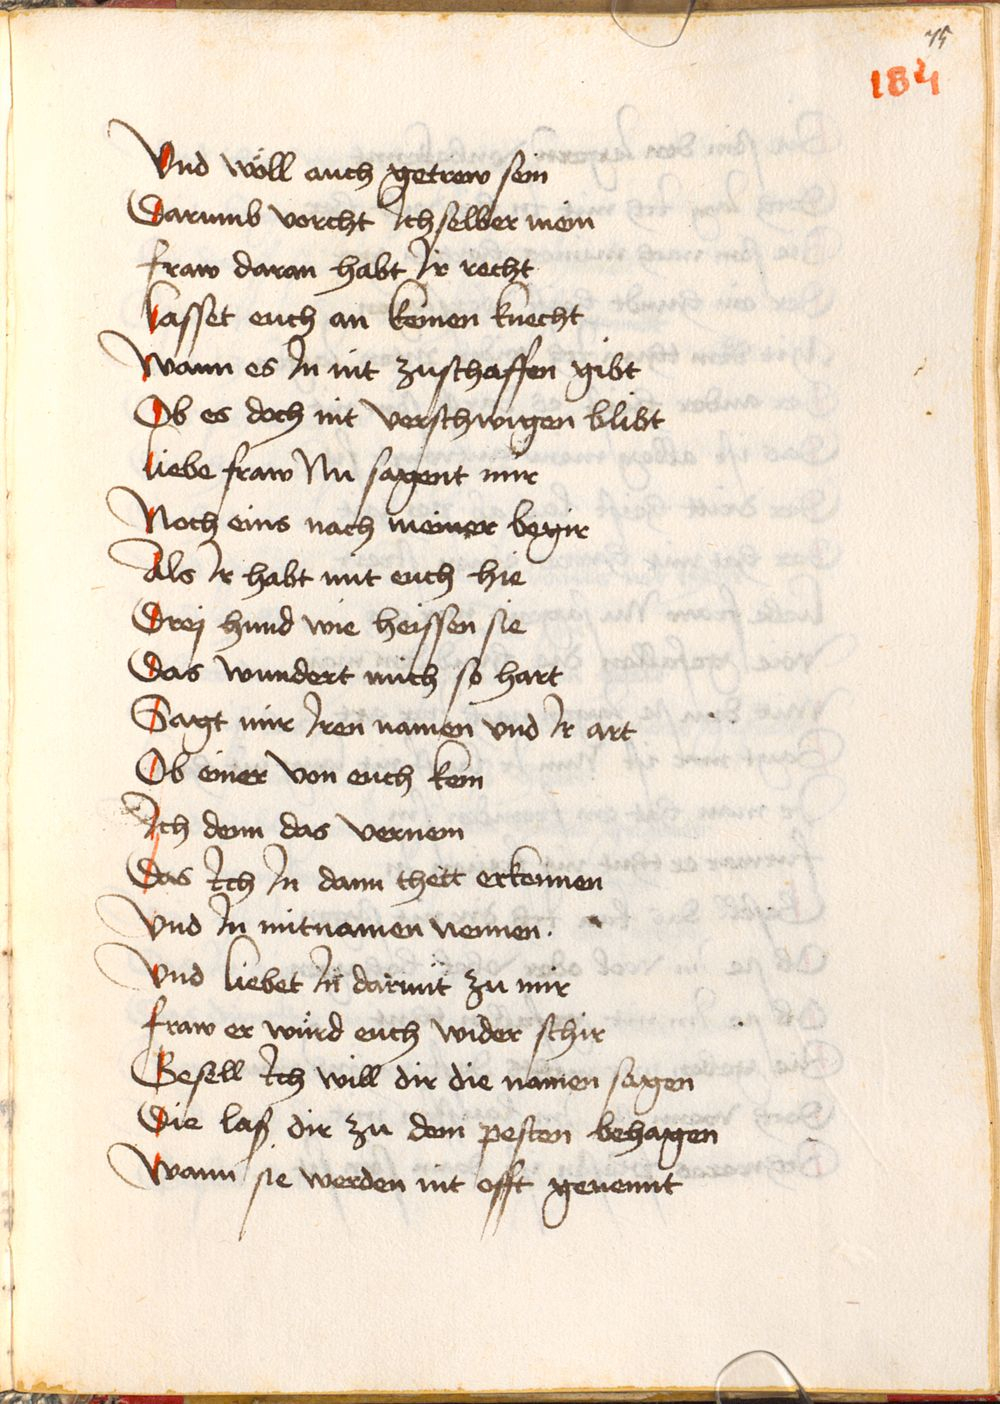 75
184
Vnd wöll auch getrew sein
Darumb vorcht Ich selber mein
fraw daran habt Ir recht
lasset euch an keinen knecht
Wann es In nit zuschaffen gibt
Ob es doch nit verschwigen blibt
liebe fraw Nu sagent mir
Noch eins nach meiner begir
Als Ir habt mit euch hie
Drej hund wie heissen sie
Das wundert mich so hart
Sagt mir Iren namen vnd Ir art
Ob einer von euch kem
Ich denn das vernem
Das Ich In dann thett erkennen
Vnd In mitnamen nennen.
Vnd liebet In darmit zu mir
fraw er würd euch wider schir
Gesell Ich will dir die namen sagen
Die laß dir zu dem pesten behagen
Wann sie werden nit offt genennt